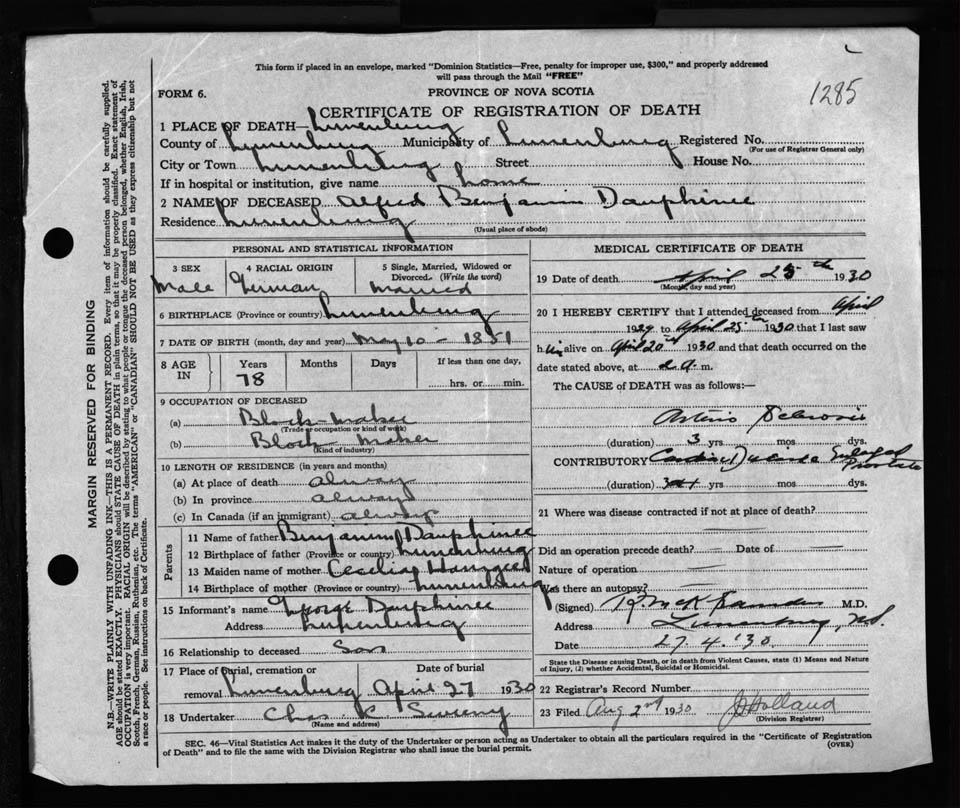 This form if placed in an envelope, marked "Dominion Statistics—Free, penalty for improper use, $300," and properly addressed
will pass through the Mail "FREE"
1285
FORM 6.
PROVINCE OF NOVA SCOTIA
CERTIFICATE OF REGISTRATION OF DEATH
1 PLACE OF DEATH— Lunenburg
County of Lunenburg Municipality of Lunenburg Registered No.
(For use of Registrar General only)
City or Town Lunenburg Street House No.
If in hospital or institution, give name home
2 NAME OF DECEASED Alfred Benjamin Dauphinee
Residence Lunenburg
(Usual place of abode)
PERSONAL AND STATISTICAL INFORMATION
3 SEX 4 RACIAL ORIGIN 5 Single, Married, Widowed or
Divorced. (Write the word)
Male German Married
6 BIRTHPLACE (Province or country) Lunenburg
7 DATE OF BIRTH (month, day and year) May 10 - 1851
8 AGE IN Years Months Days If less than one day,
78 hrs. or min.
9 OCCUPATION OF DECEASED
(a) Block-maker
(Trade or occupation or kind of work)
(b) Block maker
(Kind of industry)
10 LENGTH OF RESIDENCE (in years and months)
(a) At place of death always
(b) In province always
(c) In Canada (if an immigrant) always
Parents
11 Name of father Benjamin Dauphinee
12 Birthplace of father (Province or country) Lunenburg
13 Maiden name of mother Cecelia
14 Birthplace of mother (Province or country) Lunenburg
15 Informant's name George Dauphinee
Address Lunenburg
16 Relationship to deceased Son
17 Place of burial, cremation or Date of burial
removal Lunenburg April 27 1930
18 Undertaker Chas K Sweeny
(Name and address)
MEDICAL CERTIFICATE OF DEATH
19 Date of death April 25th 1930
(Month, day and year)
20 I HEREBY CERTIFY that I attended deceased from April
1929 to April 25th 1930 that I last saw
h im alive on April 20th 1930 and that death occurred on
the date stated above, at 2 a. m.
The CAUSE of DEATH was as follows:—
Arterio Sclerosis
(duration) 3 yrs mos dys.
CONTRIBUTORY Cardiac Enlarged
Prostate
(duration) yrs mos dys.
21 Where was disease contracted if not at place of death?
Did an operation precede death? — Date of —
Nature of operation —
Was there an autopsy? —
(Signed) M.D.
Address Lunenburg, N.S.
Date 27.4.'30
State the Disease causing Death, or in death from Violent Causes, state (1) Means and Nature
of Injury, (2) whether Accidental, Suicidal or Homicidal.
22 Registrar's Record Number
23 Filed Aug 2nd 1930 Holland
(Division Registrar)
SEC. 46—Vital Statistics Act makes it the duty of the Undertaker or person acting as Undertaker to obtain all the particulars required in the "Certificate of Registration
of Death" and to file the same with the Division Registrar who shall issue the burial permit. (OVER)
MARGIN RESERVED FOR BINDING
N.B.—WRITE PLAINLY WITH UNFADING INK—THIS IS A PERMANENT RECORD. Every item of information should be carefully supplied.
AGE should be stated EXACTLY. PHYSICIANS should STATE CAUSE OF DEATH in plain terms, so that it may be properly classified. Exact statement of
OCCUPATION is very important. RACIAL ORIGIN will be described by stating to what people or tongue the deceased person belonged, whether English, Irish,
Scotch, French, German, Russian, Ruthenian, etc. The terms "AMERICAN" or "CANADIAN" SHOULD NOT BE USED as they express citizenship but not
a race or people. See instructions on back of Certificate.